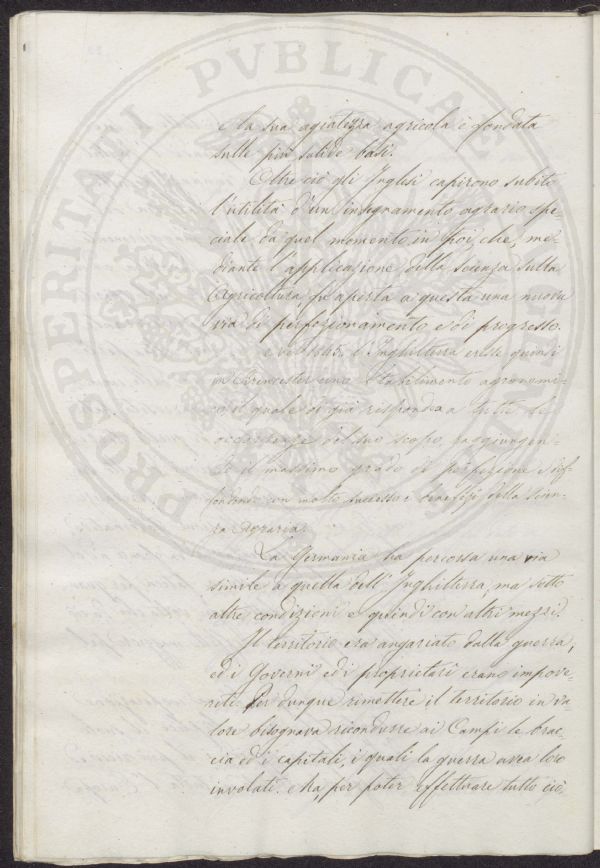 e la sua agiatezza agricola è fondata
sulle più solide basi.
Oltre ciò gli Inglesi capirono subito
l'utilità d'un insegnamento agrario spe-
ciale da quel momento in poi che, me-
diante l'applicazione della scienza sulla
Agricoltura, fu aperta a questa una nuova
via di perfezionamento e di progresso.
Nel 1845. l'Inghilterra eresse quindi
in Cirencester uno stabilimento agronomi-
co il quale di già rispondea a tutte le
occorrenze del suo scopo, raggiungen-
do il massimo grado di perfezione e dif-
fondendo con molto successo i benefizj della Scien-
za Agraria.
La Germania ha percorsa una via
simile a quella dell'Inghilterra, ma sotto
altre condizioni e quindi con altri mezzi.
Il territorio era angariato dalla guerra,
ed i Governi ed i proprietari erano impove-
riti. Per dunque rimettere il territorio in va-
lore bisognava ricondurre ai Campi le brac-
cia ed i capitali, i quali la guerra avea loro
involati. Ma, per poter effettuare tutto ciò,
PROSPERITATI PVBLICAE